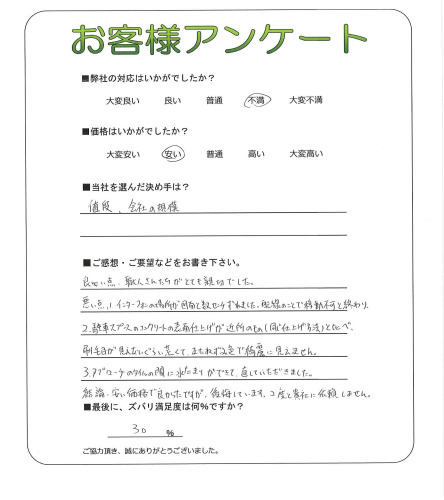 お客様アンケート
■弊社の対応はいかがでしたか？
大変良い 良い 普通 不満 大変不満
■価格はいかがでしたか？
大変安い 安い 普通 高い 大変高い
■当社を選んだ決め手は？
値段、会社の規模
■ご感想・ご要望などをお書き下さい。
良い点、職人さんたちがとても親切でした。
悪い点、1、インターホンの場所が図面と数センチずれました。配線のことで移動不可と終わり
2.駐車スペースのコンクリートの表面仕上げが近所のもの(同じ仕上げ方法)と比べ、
刷毛目が見えないぐらい荒くて、まだらな色で綺麗に見えません。
3.アプローチのタイルの間に水たまりができて、直していただきました。
結論、安い価格で良かったですが、後悔しています。2度と貴社に依頼しません。
■最後に、ズバリ満足度は何％ですか？
30 %
ご協力頂き、誠にありがとうございました。